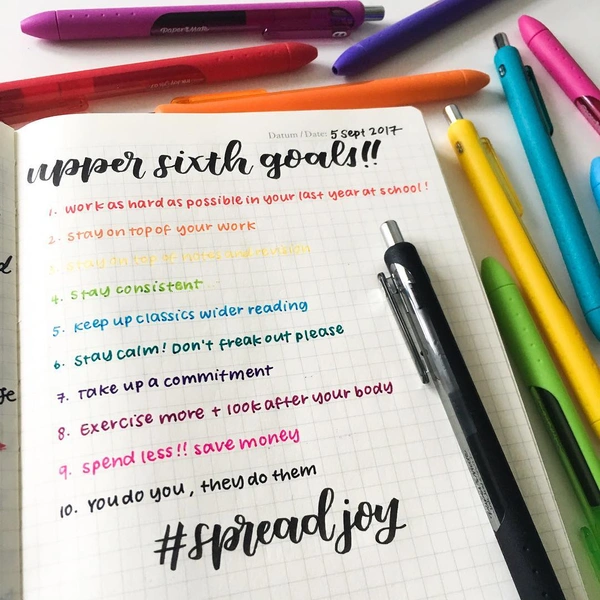 PaperMate
Datum / Date: 5 Sept 2017
upper sixth goals!!
1. work as hard as possible in your last year at school!
2. stay on top of your work
3. stay on top of notes and revision
4. stay consistent
5. keep up classics wider reading
6. stay calm! Don't freak out please
7. Take up a commitment
8. Exercise more + look after your body
9. spend less!! save money
10. you do you, they do them
#spreadjoy